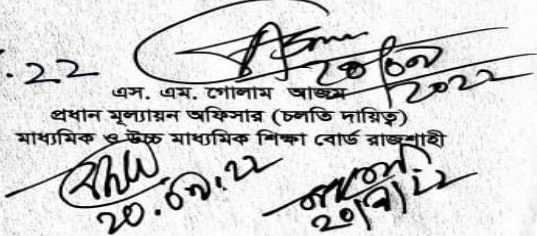 .22
২০/০৭
২০২২
এস. এম. গোলাম আজম
প্রধান মূল্যায়ন অফিসার (চলতি দায়িত্ব)
মাধ্যমিক ও উচ্চ মাধ্যমিক শিক্ষা বোর্ড রাজশাহী
২০.০৭.২২
২০/৭/২২